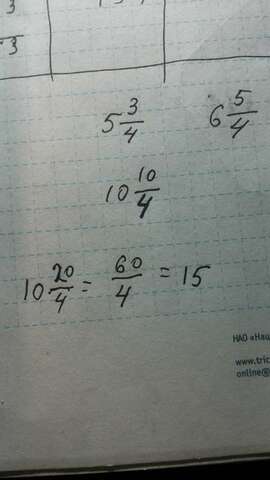 3
3
5 3/4 6 5/4
10 10/4
10 20/4 = 60/4 = 15
НАО «Наш
www.tric
online@